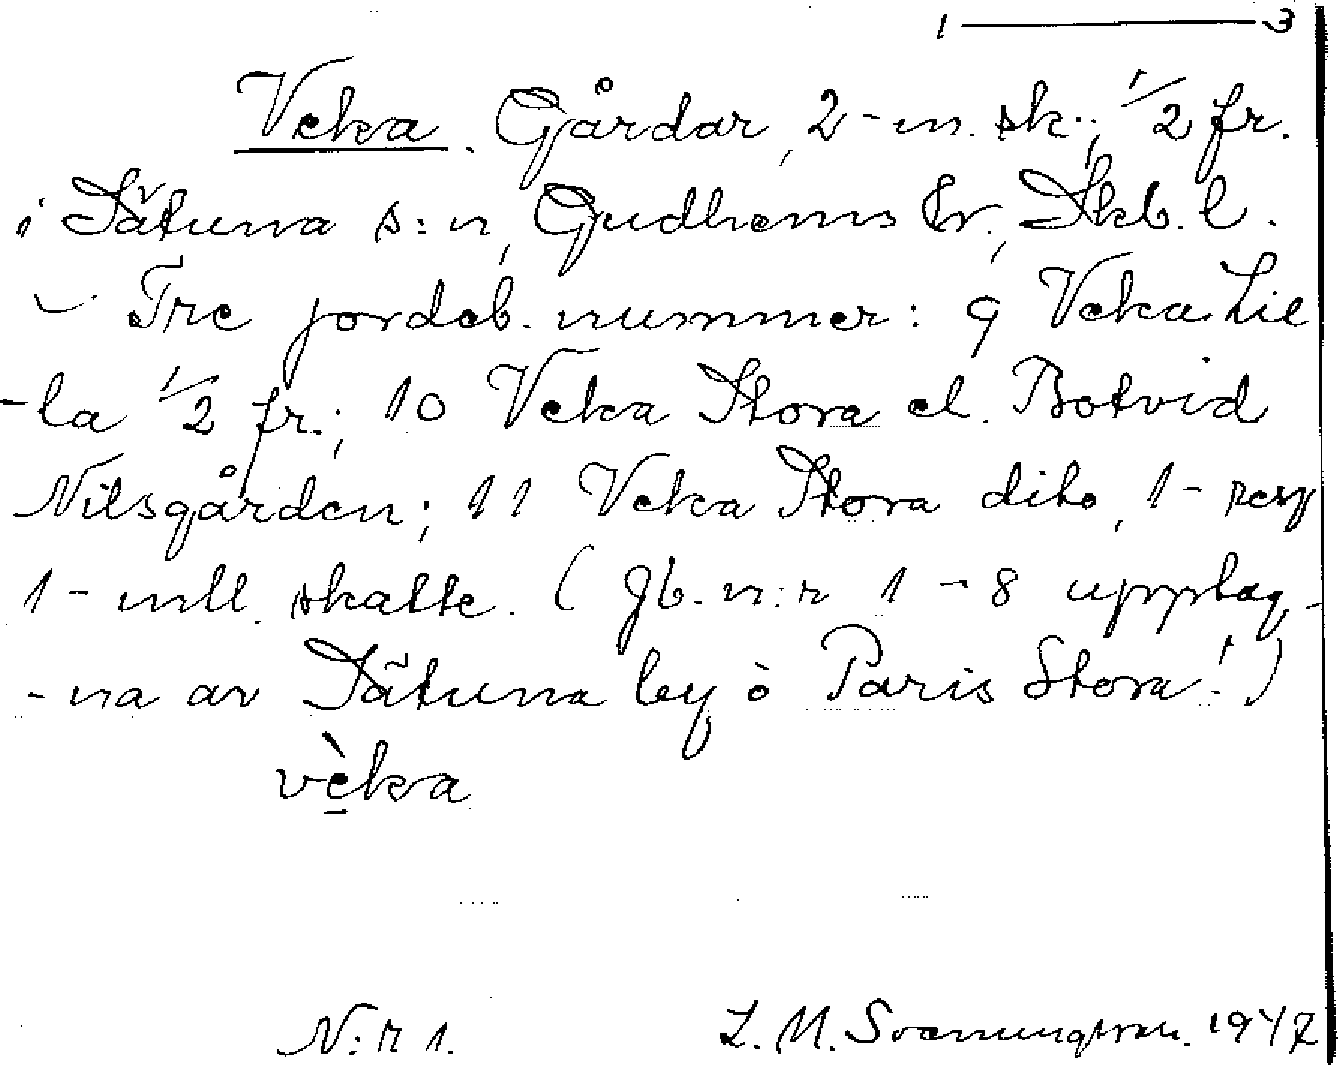 1 — 3
Veka. Gårdar, 2-m. sk.; 1/2 fr.
i Sätuna s:n, Gudhems hr, Skb. l.
– Tre jordeb. nummer: 9 Veka Lil
-la 1/2 fr.; 10 Veka Stora el. Botvid
Nilsgården; 11 Veka Stora dito, 1- resp
1- mtl. skatte. (Jb. n:r 1-8 upptag-
-na av Sätuna by o Paris Stora!)
vèka
N:r 1. L. M. Svenungsson. 1947